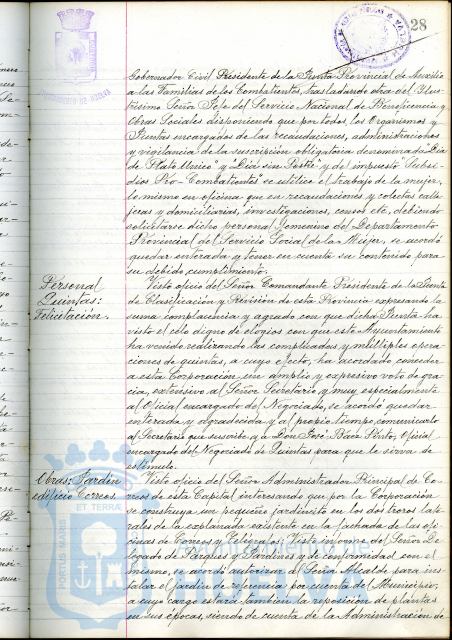 28
AYUNTAMIENTO DE HUELVA
Gobernador Civil Presidente de la Junta Provincial de Auxilio
a las Familias de los Combatientes, trasladando otra del Ilus-
trísimo Señor Jefe del Servicio Nacional de Beneficencia y
Obras Sociales disponiendo que por todos los Organismos y
Juntas encargados de las recaudaciones, administraciones
y vigilancia de la suscripción obligatoria denominada "Día
de Plato Unico" y "Día sin Postre" y del impuesto "Subsi-
dios Pro-Combatiente" se utilice el trabajo de la mujer,
lo mismo en oficina que en recaudaciones y colectas calle-
jeras y domiciliarias, investigaciones, censos etc, debiendo
solicitarse dicho personal femenino del Departamento
Provincial del Servicio Social de la Mujer, se acordó
quedar enterada y tener en cuenta su contenido para
su debido cumplimiento.
Personal
Quintas:
Felicitación.
Visto oficio del Señor Comandante Presidente de la Junta
de Clasificación y Revisión de esta Provincia expresando la
suma complacencia y agrado con que dicha Junta ha
visto el celo digno de elogios con que este Ayuntamiento
ha venido realizando las complicadas y múltiples opera-
ciones de quintas, a cuyo efecto, ha acordado conceder
a esta Corporación un amplio y expresivo voto de gra-
cia, extensivo al Señor Secretario y muy especialmente
al Oficial encargado del Negociado, se acordó quedar
enterada y agradecida y al propio tiempo comunicarlo
al Secretario que suscribe y a Don José Baez Pinto, Oficial
encargado del Negociado de Quintas para que le sirva de
estímulo.
Obras: Jardin
edificio Correos.
Visto oficio del Señor Administrador Principal de Co-
rreos de esta Capital interesando que por la Corporación
se construya un pequeño jardinito en los dos trozos late-
rales de la explanada existente en la fachada de las ofi-
cinas de Correos y Telégrafos; Visto informe del Señor De-
legado de Parques y Jardines y de conformidad con el
mismo, se acordó autorizar al Señor Alcalde para ins-
talar el jardín de referencia por cuenta del Municipio,
a cuyo cargo estará tambien la reposición de plantas
en sus épocas, siendo de cuenta de la Administración de
PORTUS MARIS
ET TERRA